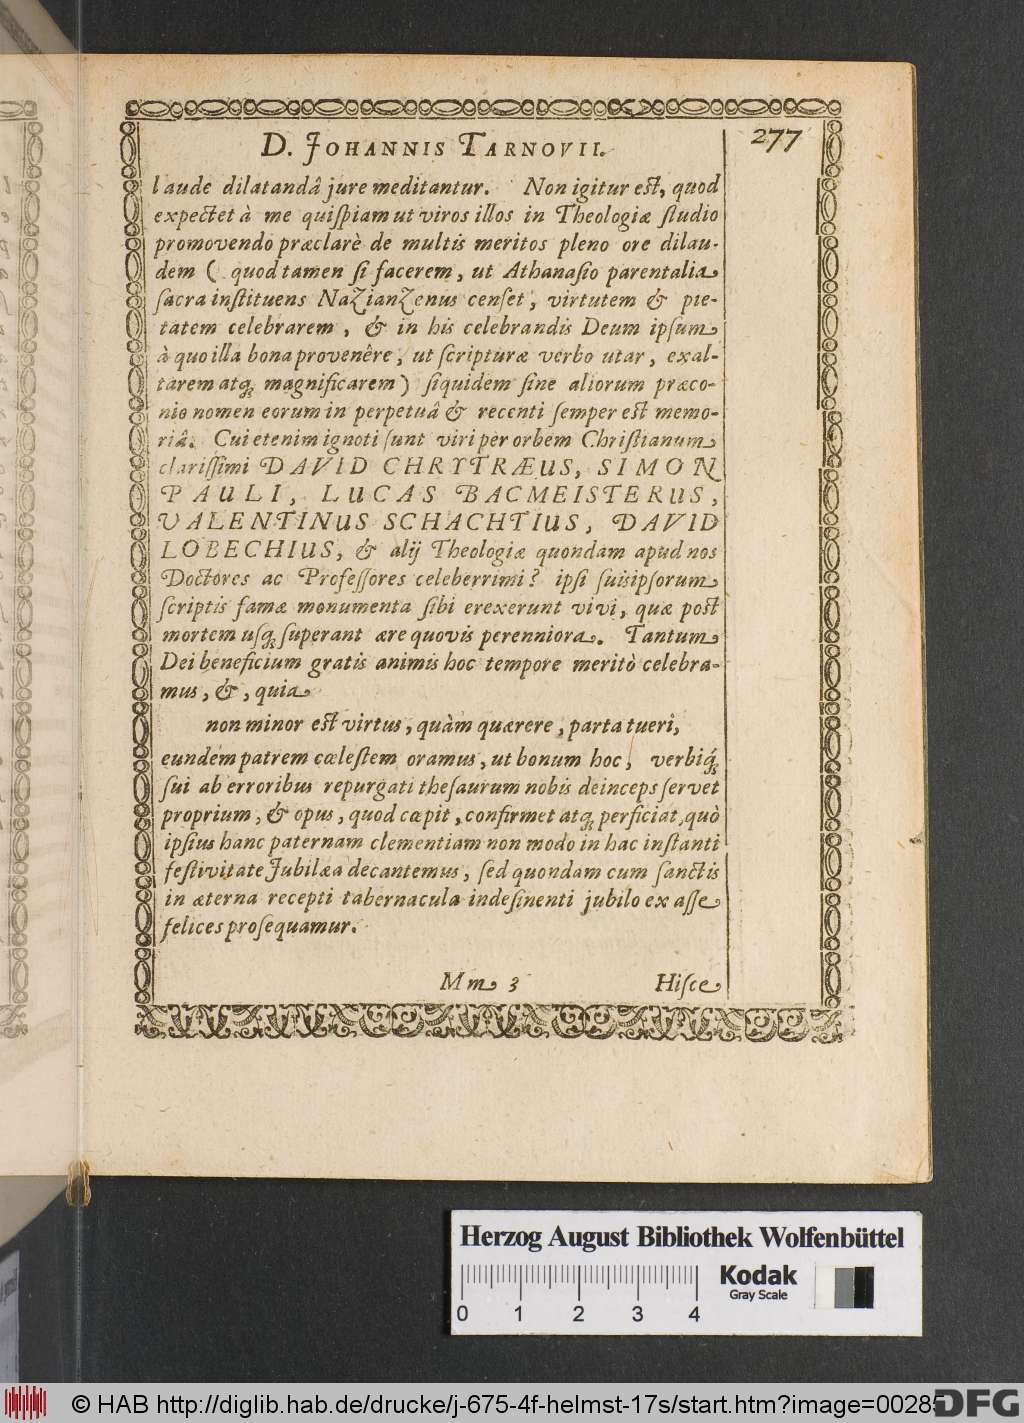 D. JOHANNIS TARNOVII.
277
laude dilatandâ jure meditantur. Non igitur est, quod
expectet à me quiſpiam ut viros illos in Theologiæ ſtudio
promovendo præclarè de multis meritos pleno ore dilau-
dem ( quod tamen ſi facerem, ut Athanaſio parentalia
ſacra inſtituens NaZianZenus cenſet, virtutem & pie-
tatem celebrarem, & in his celebrandis Deum ipſum
à quo illa bona provenêre, ut ſcripturæ verbo utar, exal-
tarem atq; magnificarem) ſiquidem ſine aliorum præco-
nio nomen eorum in perpetuâ & recenti ſemper est memo-
riâ. Cui etenim ignoti ſunt viri per orbem Chriſtianum
clariſſimi DAVID CHRYTRÆUS, SIMON
PAULI, LUCAS BACMEISTERUS,
VALENTINUS SCHACHTIUS, DAVID
LOBECHIUS, & alij Theologiæ quondam apud nos
Doctores ac Profeſſores celeberrimi? ipſi ſuis ipſorum
ſcriptis famæ monumenta ſibi erexerunt vivi, quæ post
mortem uſq; ſuperant ære quovis perenniora. Tantum
Dei beneficium gratis animis hoc tempore meritò celebra-
mus, &, quia
non minor est virtus, quàm quærere, parta tueri,
eundem patrem cœleſtem oramus, ut bonum hoc, verbiq́;
ſui ab erroribus repurgati theſaurum nobis deinceps ſervet
proprium, & opus, quod cœpit, confirmet atq; perficiat, quò
ipſius hanc paternam clementiam non modo in hac inſtanti
feſtivitate Jubilæa decantemus, ſed quondam cum ſanctis
in æterna recepti tabernacula indeſinenti jubilo ex aſſe
felices proſequamur.
Mm 3
Hiſce
Herzog August Bibliothek Wolfenbüttel
0 1 2 3 4
Kodak
Gray Scale
© HAB http://diglib.hab.de/drucke/j-675-4f-helmst-17s/start.htm?image=00285
DFG